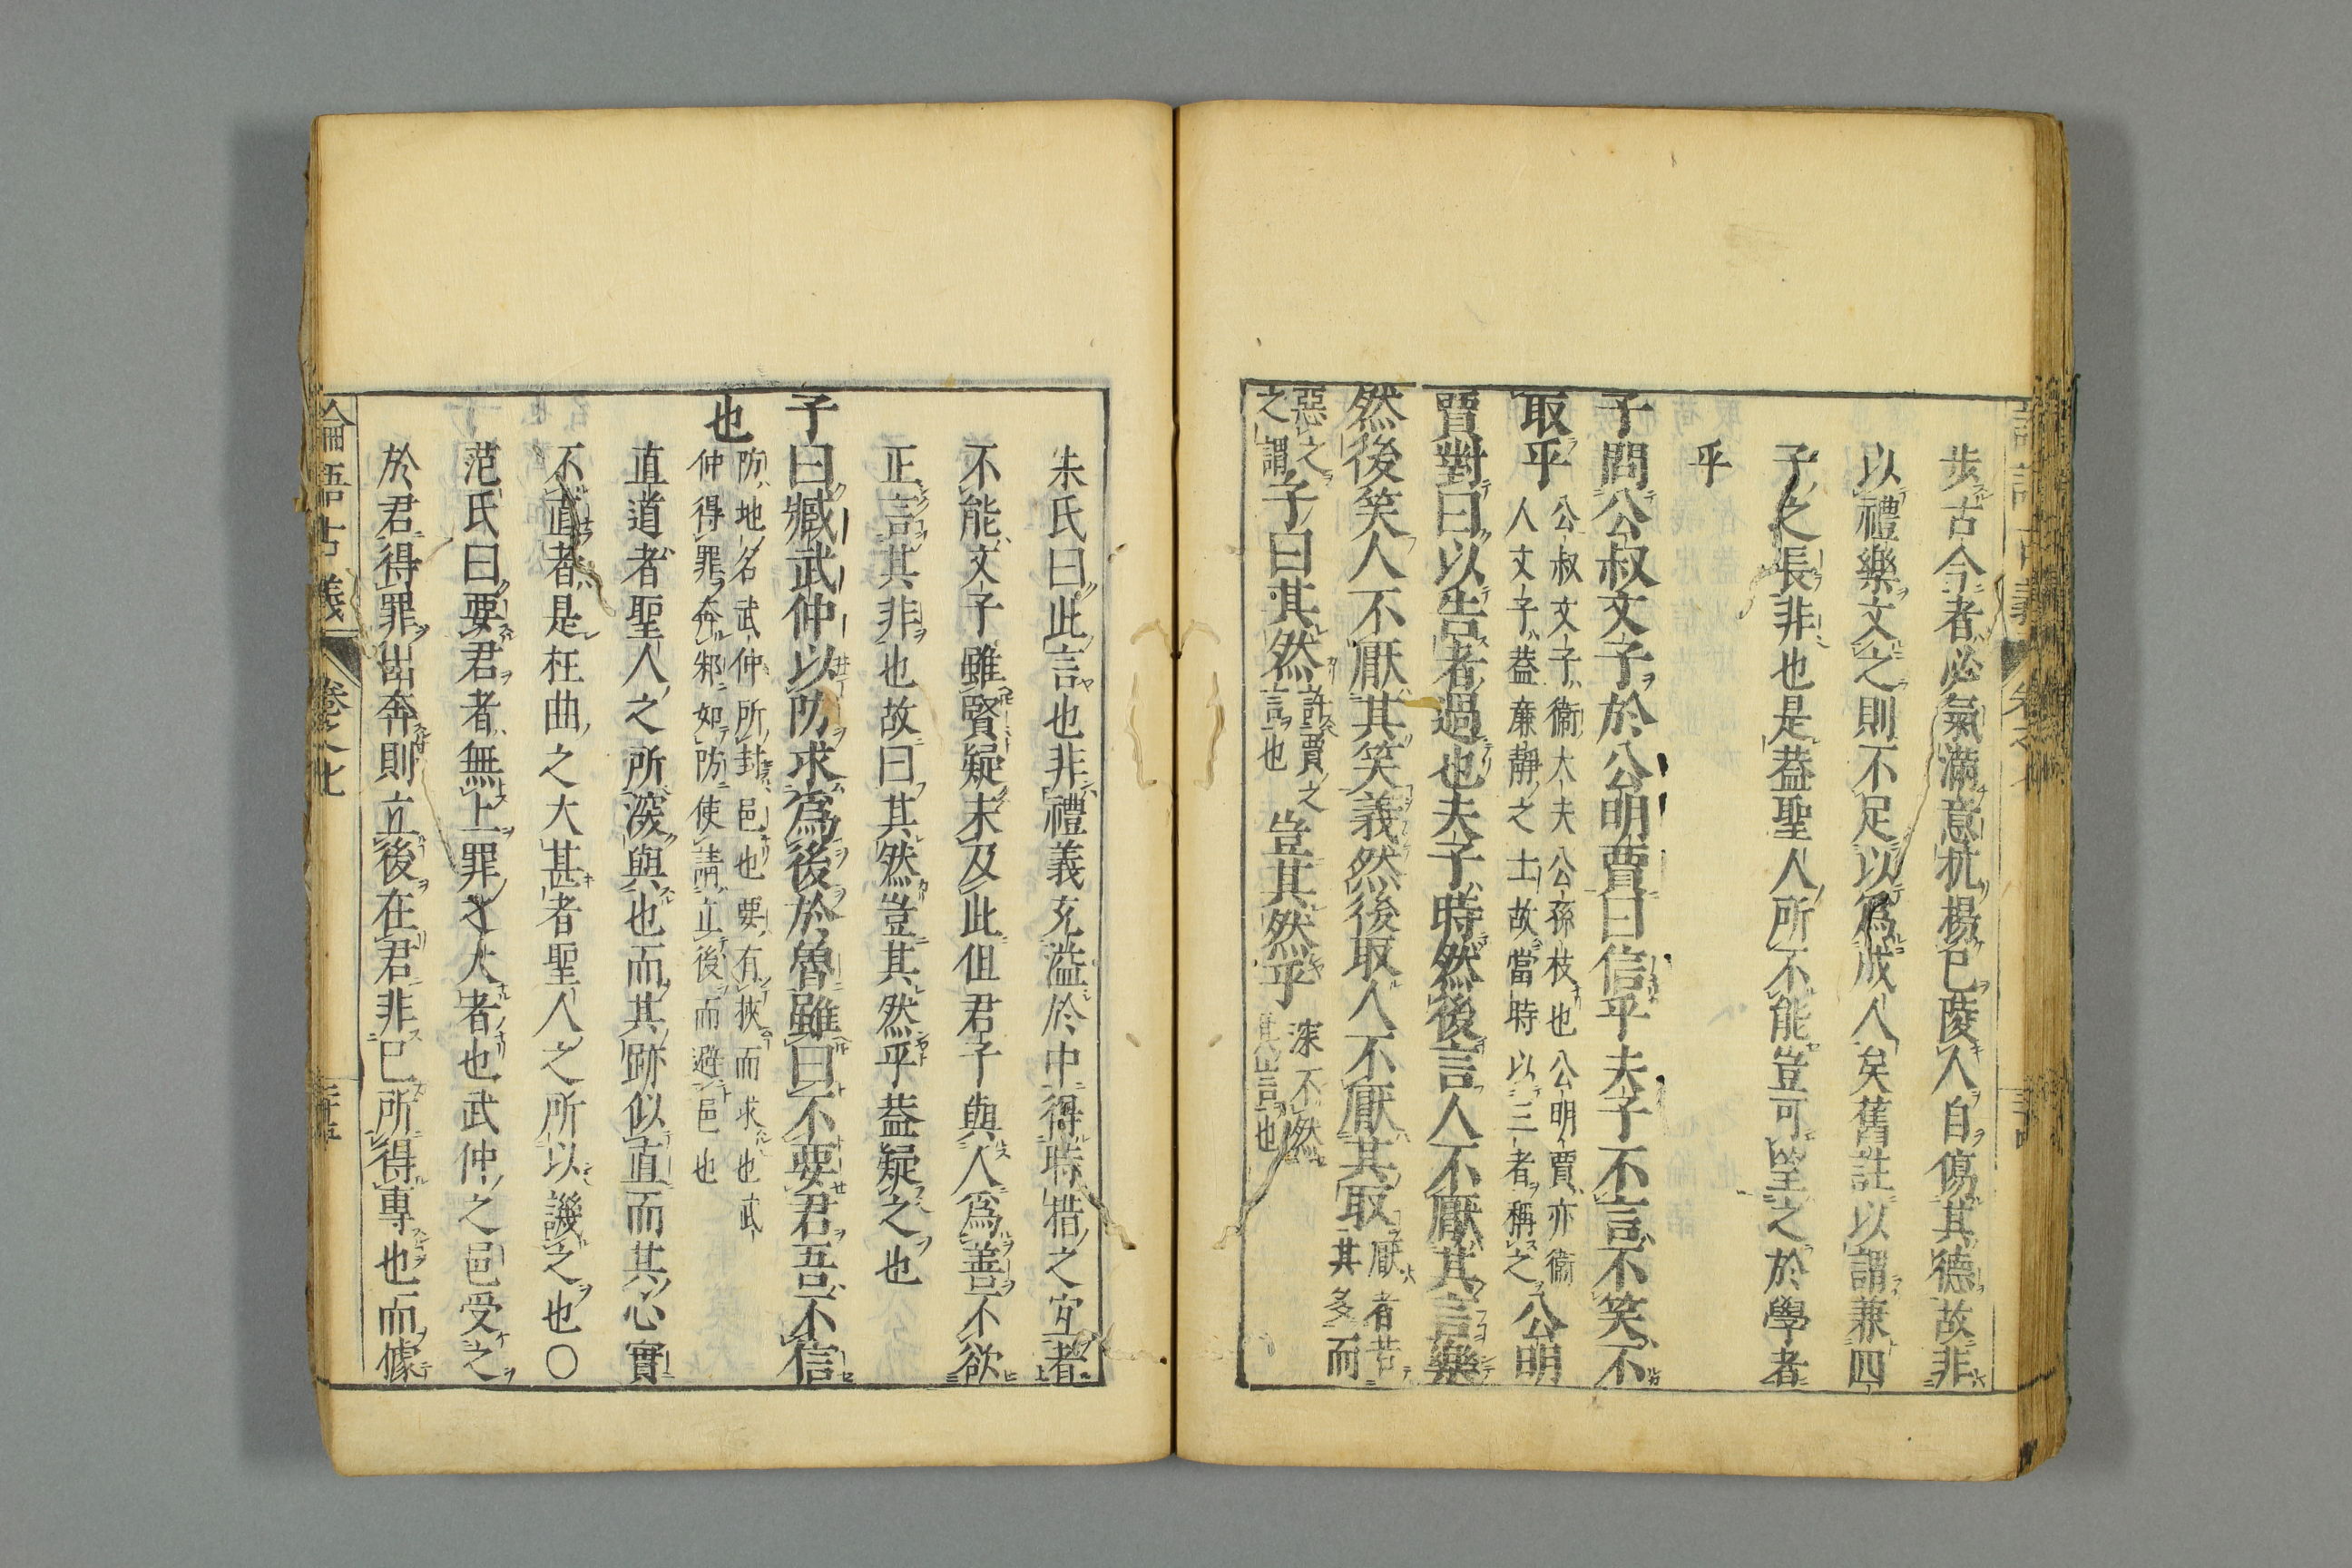 歩古今者必氣滿意抗揚已陵人自傷其德故非
以禮樂文之則不足以爲成人矣舊註以謂兼四
子之長非也是葢聖人所不能豈可望之於學者
乎
子問公叔文子於公明賈曰信乎夫子不言不笑不
取乎
公叔文子衞大夫公孫枝也公明賈亦衞
人文子葢廉靜之士故當時以三者稱之
公明
賈對曰以告者過也夫子時然後言人不厭其言樂
然後笑人不厭其笑義然後取人不厭其取
厭者苦
其多而
惡之
之謂
子曰其然
許賈之
言也
豈其然乎
深不然
其言也
朱氏曰此言也非禮義充溢於中得時措之宜者
不能文子雖賢疑未及此但君子與人爲善不欲
正言其非也故曰其然豈其然乎葢疑之也
子曰臧武仲以防求爲後於魯雖曰不要君吾不信
也
防地名武仲所封邑也要有挾而求也武
仲得罪奔邾如防使請立後而避邑也
直道者聖人之所深與也而其跡似直而其心實
不直者是枉曲之大甚者聖人之所以譏之也〇
范氏曰要君者無上罪之大者也武仲之邑受之
於君得罪出奔則立後在君非已所得專也而據
論語古義
卷之七
三十五